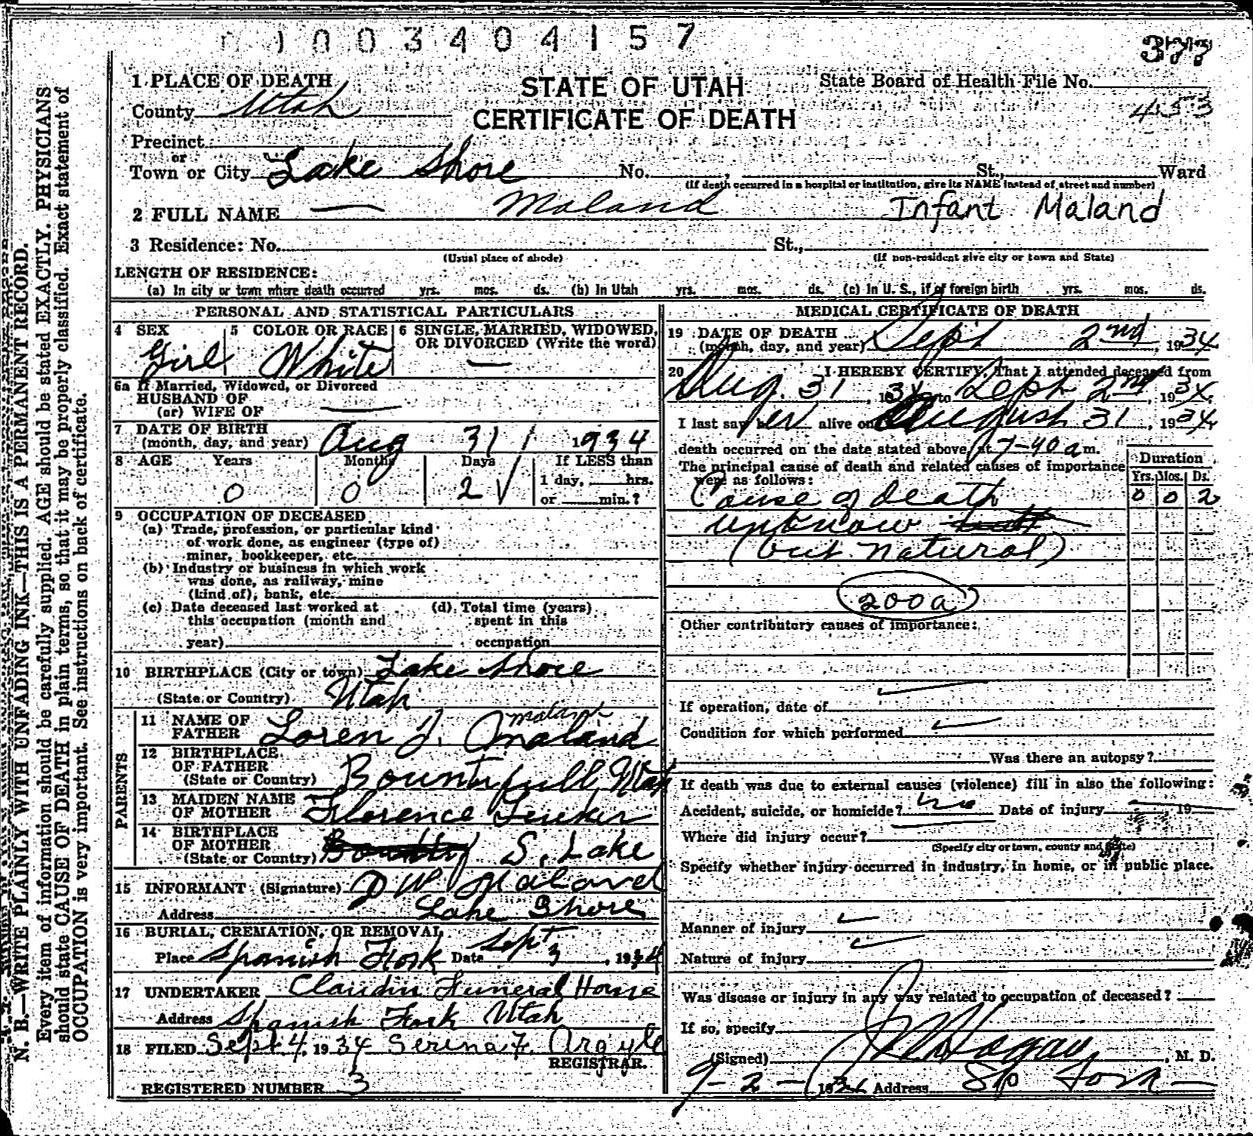 01003404157
377
1 PLACE OF DEATH
STATE OF UTAH
State Board of Health File No.
County Utah
CERTIFICATE OF DEATH
453
Precinct
or
Town or City Lake Shore No. , St., Ward
(If death occurred in a hospital or institution, give its NAME instead of street and number)
2 FULL NAME — Maland Infant Maland
3 Residence: No. St.,
(Usual place of abode) (If non-resident give city or town and State)
LENGTH OF RESIDENCE:
(a) In city or town where death occurred yrs. mos. ds. (b) In Utah yrs. mos. ds. (c) In U. S., if of foreign birth yrs. mos. ds.
N. B.—WRITE PLAINLY WITH UNFADING INK—THIS IS A PERMANENT RECORD.
Every item of information should be carefully supplied. AGE should be stated EXACTLY. PHYSICIANS
should state CAUSE OF DEATH in plain terms, so that it may be properly classified. Exact statement of
OCCUPATION is very important. See instructions on back of certificate.
PERSONAL AND STATISTICAL PARTICULARS
4 SEX 5 COLOR OR RACE 6 SINGLE, MARRIED, WIDOWED,
OR DIVORCED (Write the word)
Girl White —
6a If Married, Widowed, or Divorced
HUSBAND OF
(or) WIFE OF —
7 DATE OF BIRTH
(month, day, and year) Aug 31 1934
8 AGE Years Months Days If LESS than
1 day, hrs.
or min.?
0 0 2
9 OCCUPATION OF DECEASED
(a) Trade, profession, or particular kind
of work done, as engineer (type of)
miner, bookkeeper, etc.
(b) Industry or business in which work
was done, as railway, mine
(kind of), bank, etc.
(c) Date deceased last worked at
this occupation (month and
year)
(d) Total time (years)
spent in this
occupation
10 BIRTHPLACE (City or town) Lake Shore
(State or Country) Utah
PARENTS
11 NAME OF
FATHER Loren J. Maland
maland
12 BIRTHPLACE
OF FATHER
(State or Country) Bountyfull, Utah
13 MAIDEN NAME
OF MOTHER Florence
14 BIRTHPLACE
OF MOTHER
(State or Country) S. Lake
15 INFORMANT (Signature) D W Maland
Address Lake Shore
16 BURIAL, CREMATION, OR REMOVAL
Place Spanish Fork Date Sept 3, 1934
17 UNDERTAKER Claudin Funeral Home
Address Spanish Fork Utah
18 FILED Sept 4, 1934 Serena F. Argyle
REGISTRAR.
REGISTERED NUMBER 3
MEDICAL CERTIFICATE OF DEATH
19 DATE OF DEATH
(month, day, and year) Sept 2nd, 1934
20 I HEREBY CERTIFY, That I attended deceased from
Aug. 31, 1934, to Sept 2nd, 1934.
I last saw her alive on August 31, 1934
death occurred on the date stated above at 7-40 a m.
The principal cause of death and related causes of importance
were as follows:
Duration
Yrs. Mos. Ds.
0 0 2
Cause of death
unknow
(but natural)
200a
Other contributory causes of importance:
If operation, date of
Condition for which performed
Was there an autopsy?
If death was due to external causes (violence) fill in also the following:
Accident, suicide, or homicide? no Date of injury 19
Where did injury occur?
(Specify city or town, county and State)
Specify whether injury occurred in industry, in home, or in public place.
Manner of injury
Nature of injury
Was disease or injury in any way related to occupation of deceased?
If so, specify
(Signed) Hagan, M. D.
9-2-1934 Address Sp Fork